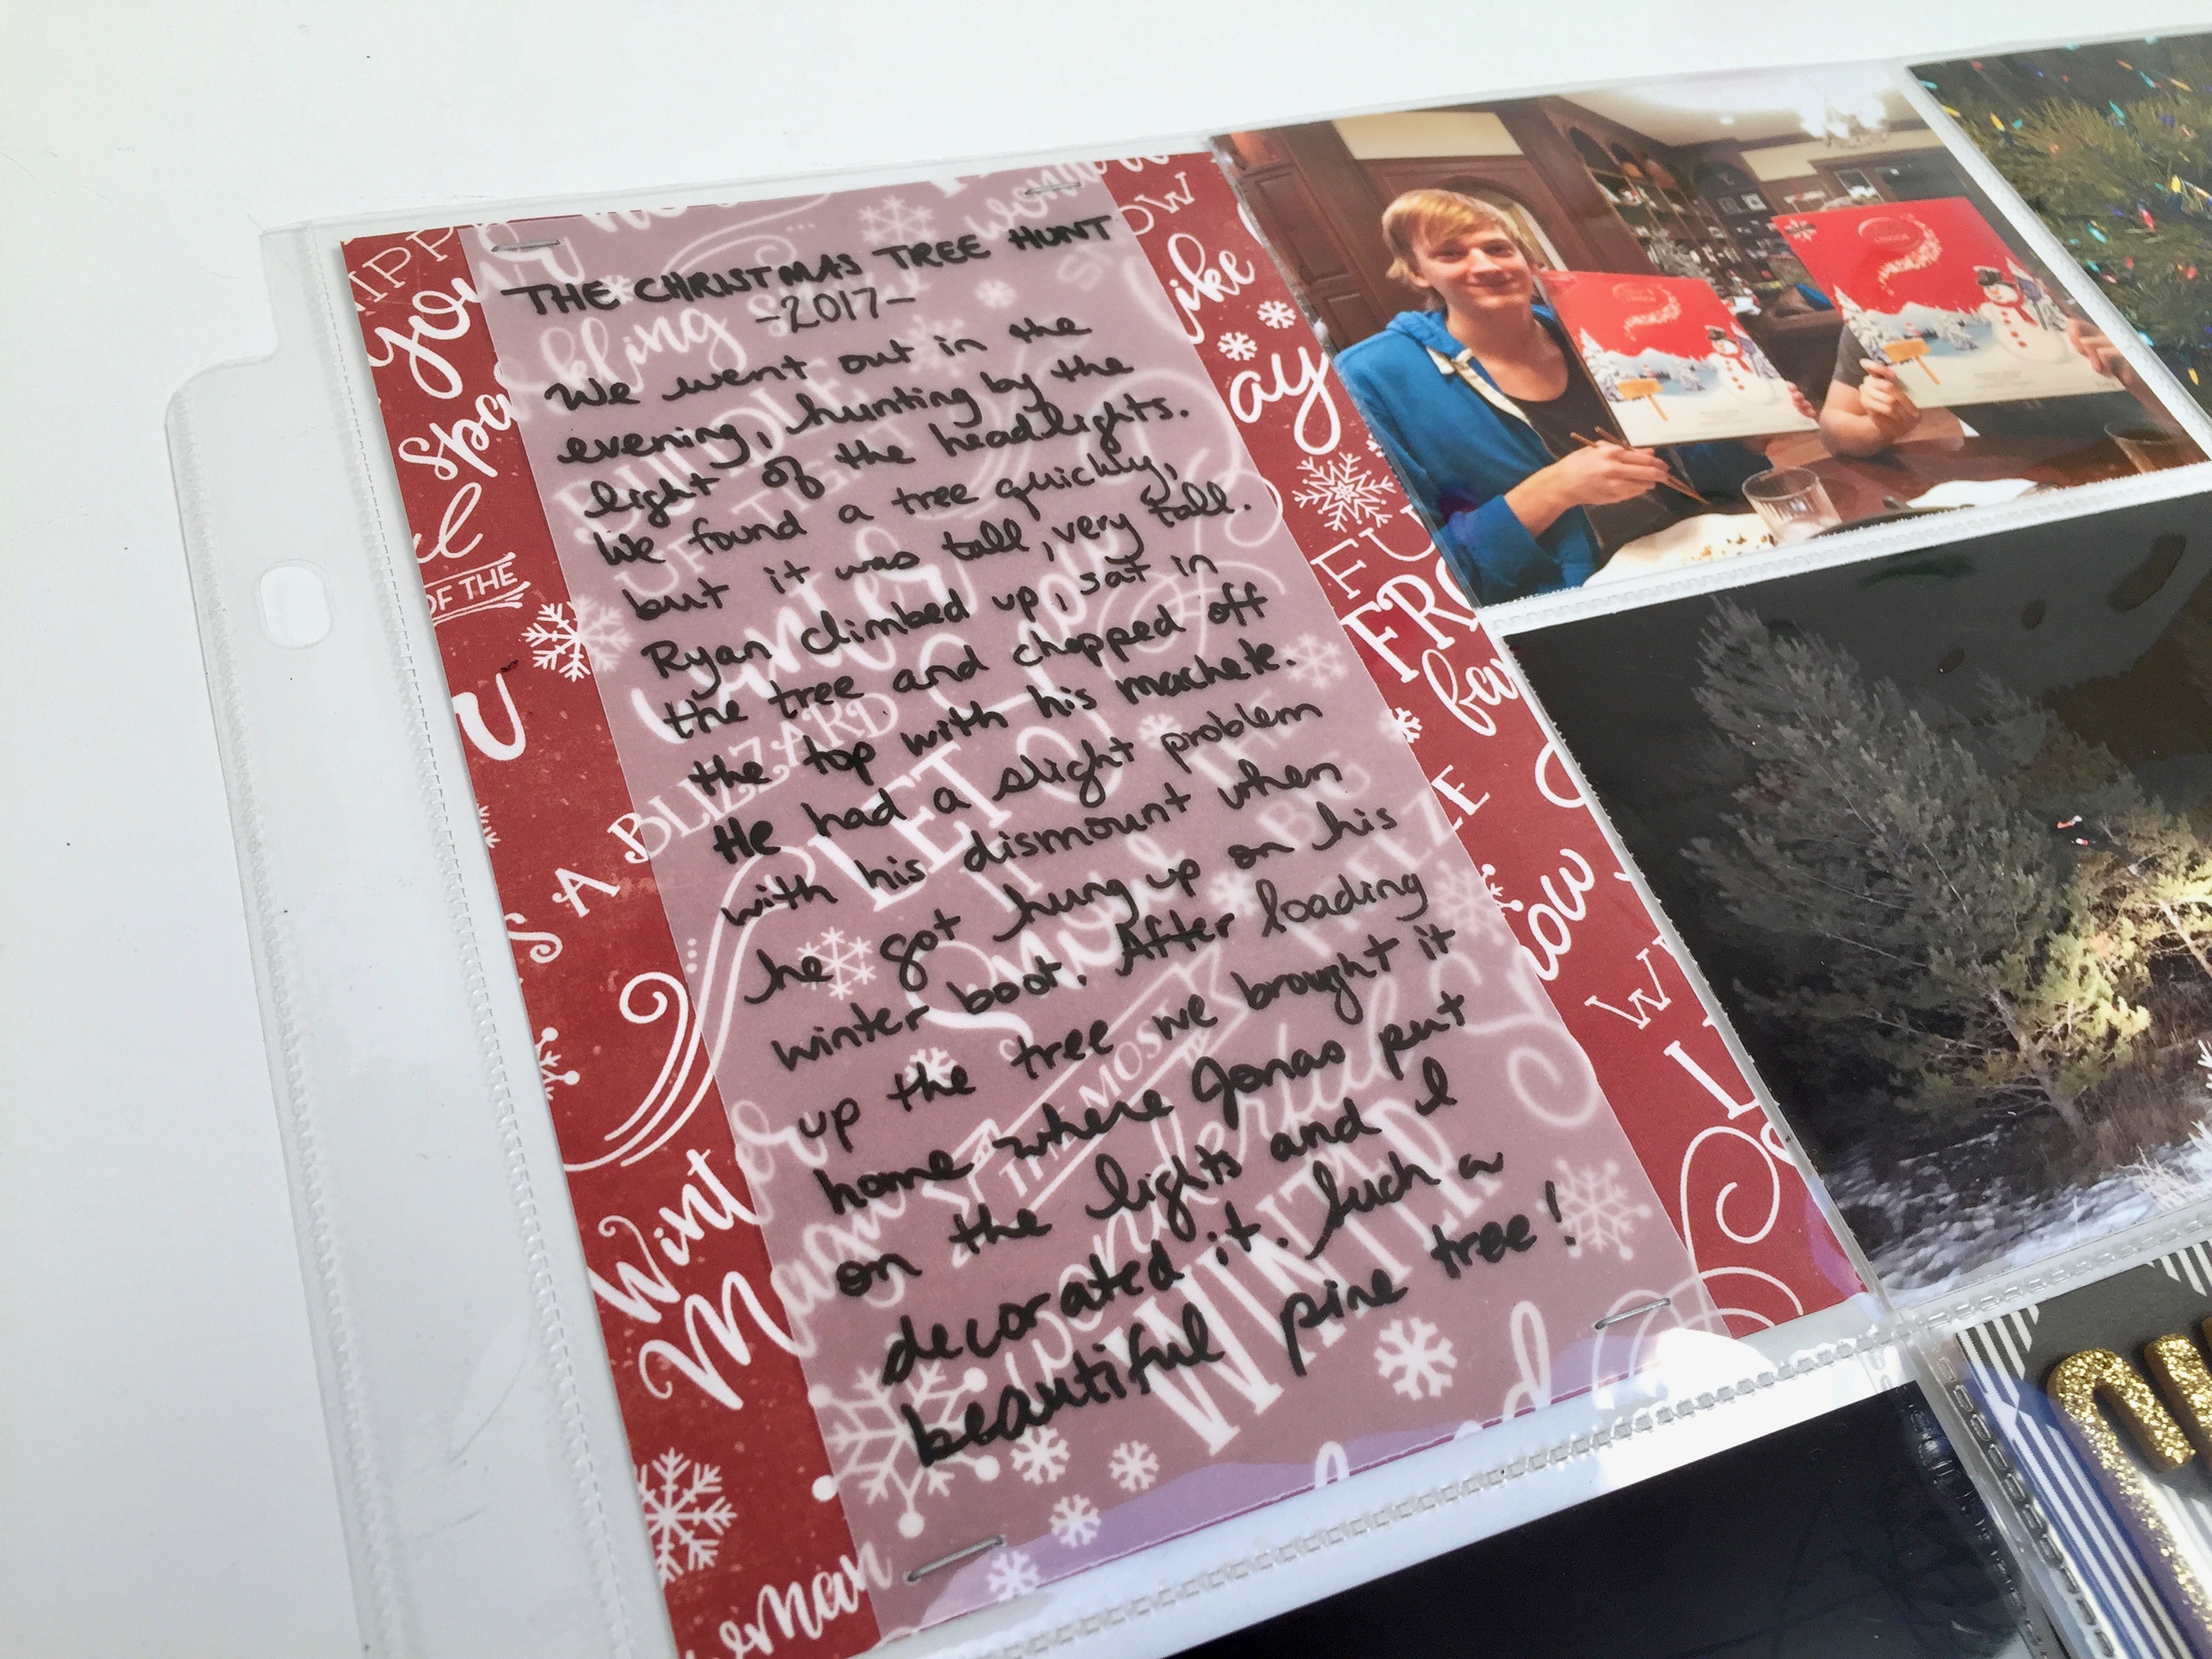 THE CHRISTMAS TREE HUNT
-2017-
We went out in the
evening, hunting by the
light of the headlights.
We found a tree quickly,
but it was tall, very tall.
Ryan climbed up, sat in
the tree and chopped off
the top with his machete.
He had a slight problem
with his dismount when
he got hung up on his
winter boot. After loading
up the tree we brought it
home where Jonas put
on the lights and I
decorated it. Such a
beautiful pine tree!
OF THE
A BLIZZARD
LET
IT
THE MOST
wonderful
WINTER